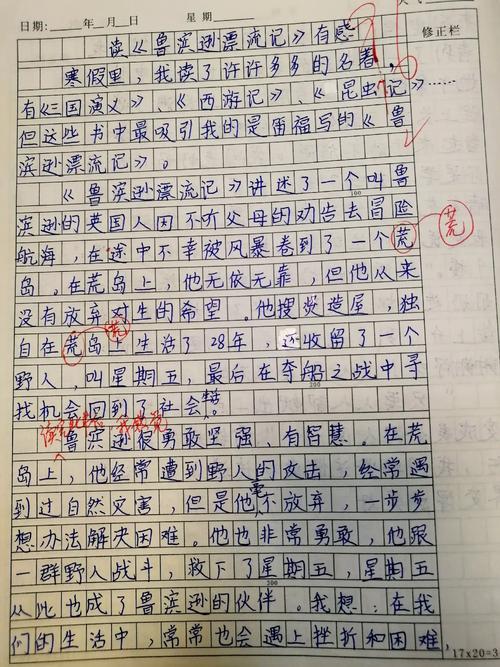 日期: 年 月 日 星期
修正栏
读《鲁滨逊漂流记》有感
寒假里,我读了许许多多的名著,
有《三国演义》、《西游记》、《昆虫记》……
但这些书中最吸引我的是雷福写的《鲁
滨逊漂流记》。
《鲁滨逊漂流记》讲述了一个叫鲁
100
滨逊的英国人因不听父母的劝告去冒险
航海,在途中不幸被风暴卷到了一个荒
荒
岛。在荒岛上,他无依无靠,但他从来
没有放弃对生的希望。他搜
造屋,独
荒
自在荒岛上生活了28年,还收留了一个
野人,叫星期五,最后在夺船之战中寻
200
找机会回到了社会
。
鲁滨逊很勇敢坚强、有智慧。在荒
岛上,他经常遭到野人的攻击,经常遇
到过自然灾害,但是他不放弃,一步步
想办法解决困难。他也非常勇敢,他跟
一群野人战斗,救下了星期五,星期五
300
从此也成了鲁滨逊的伙伴。我想:在我
们的生活中,常常也会遇上挫折和困难,
17×20=3